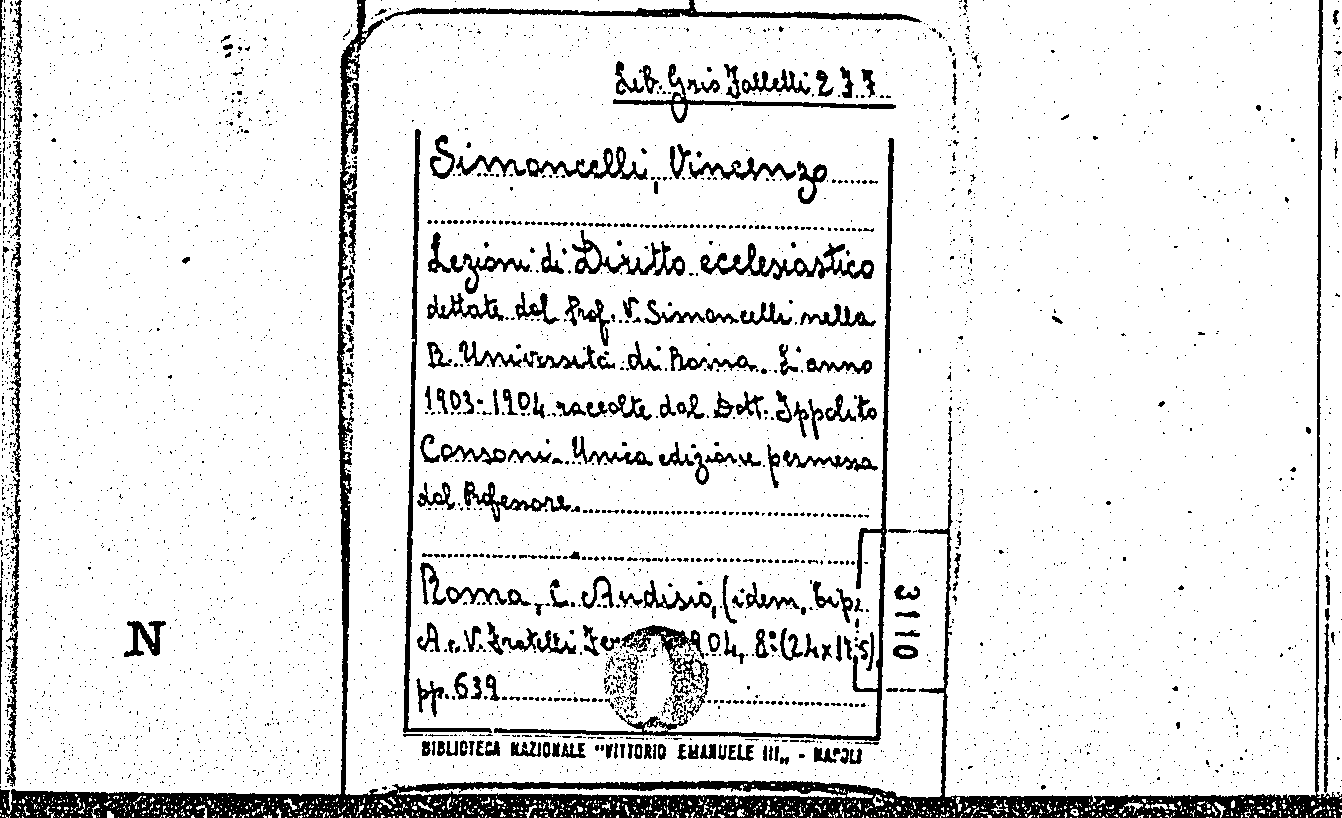 Lib. Gris Falletti 2 77
Simoncelli, Vincenzo
Lezioni di Diritto ecclesiastico
dettate dal Prof. V. Simoncelli nella
R. Università di Roma. L'anno
1903-1904 raccolte dal Dott. Ippolito
Consoni. Unica edizione permessa
dal Professore.
Roma, C. Andisio, (idem, tip.
A. e V. Fratelli 904, 8°.
pp. 639
3110
N
BIBLIOTECA NAZIONALE "VITTORIO EMANUELE III„ - NAPOLI